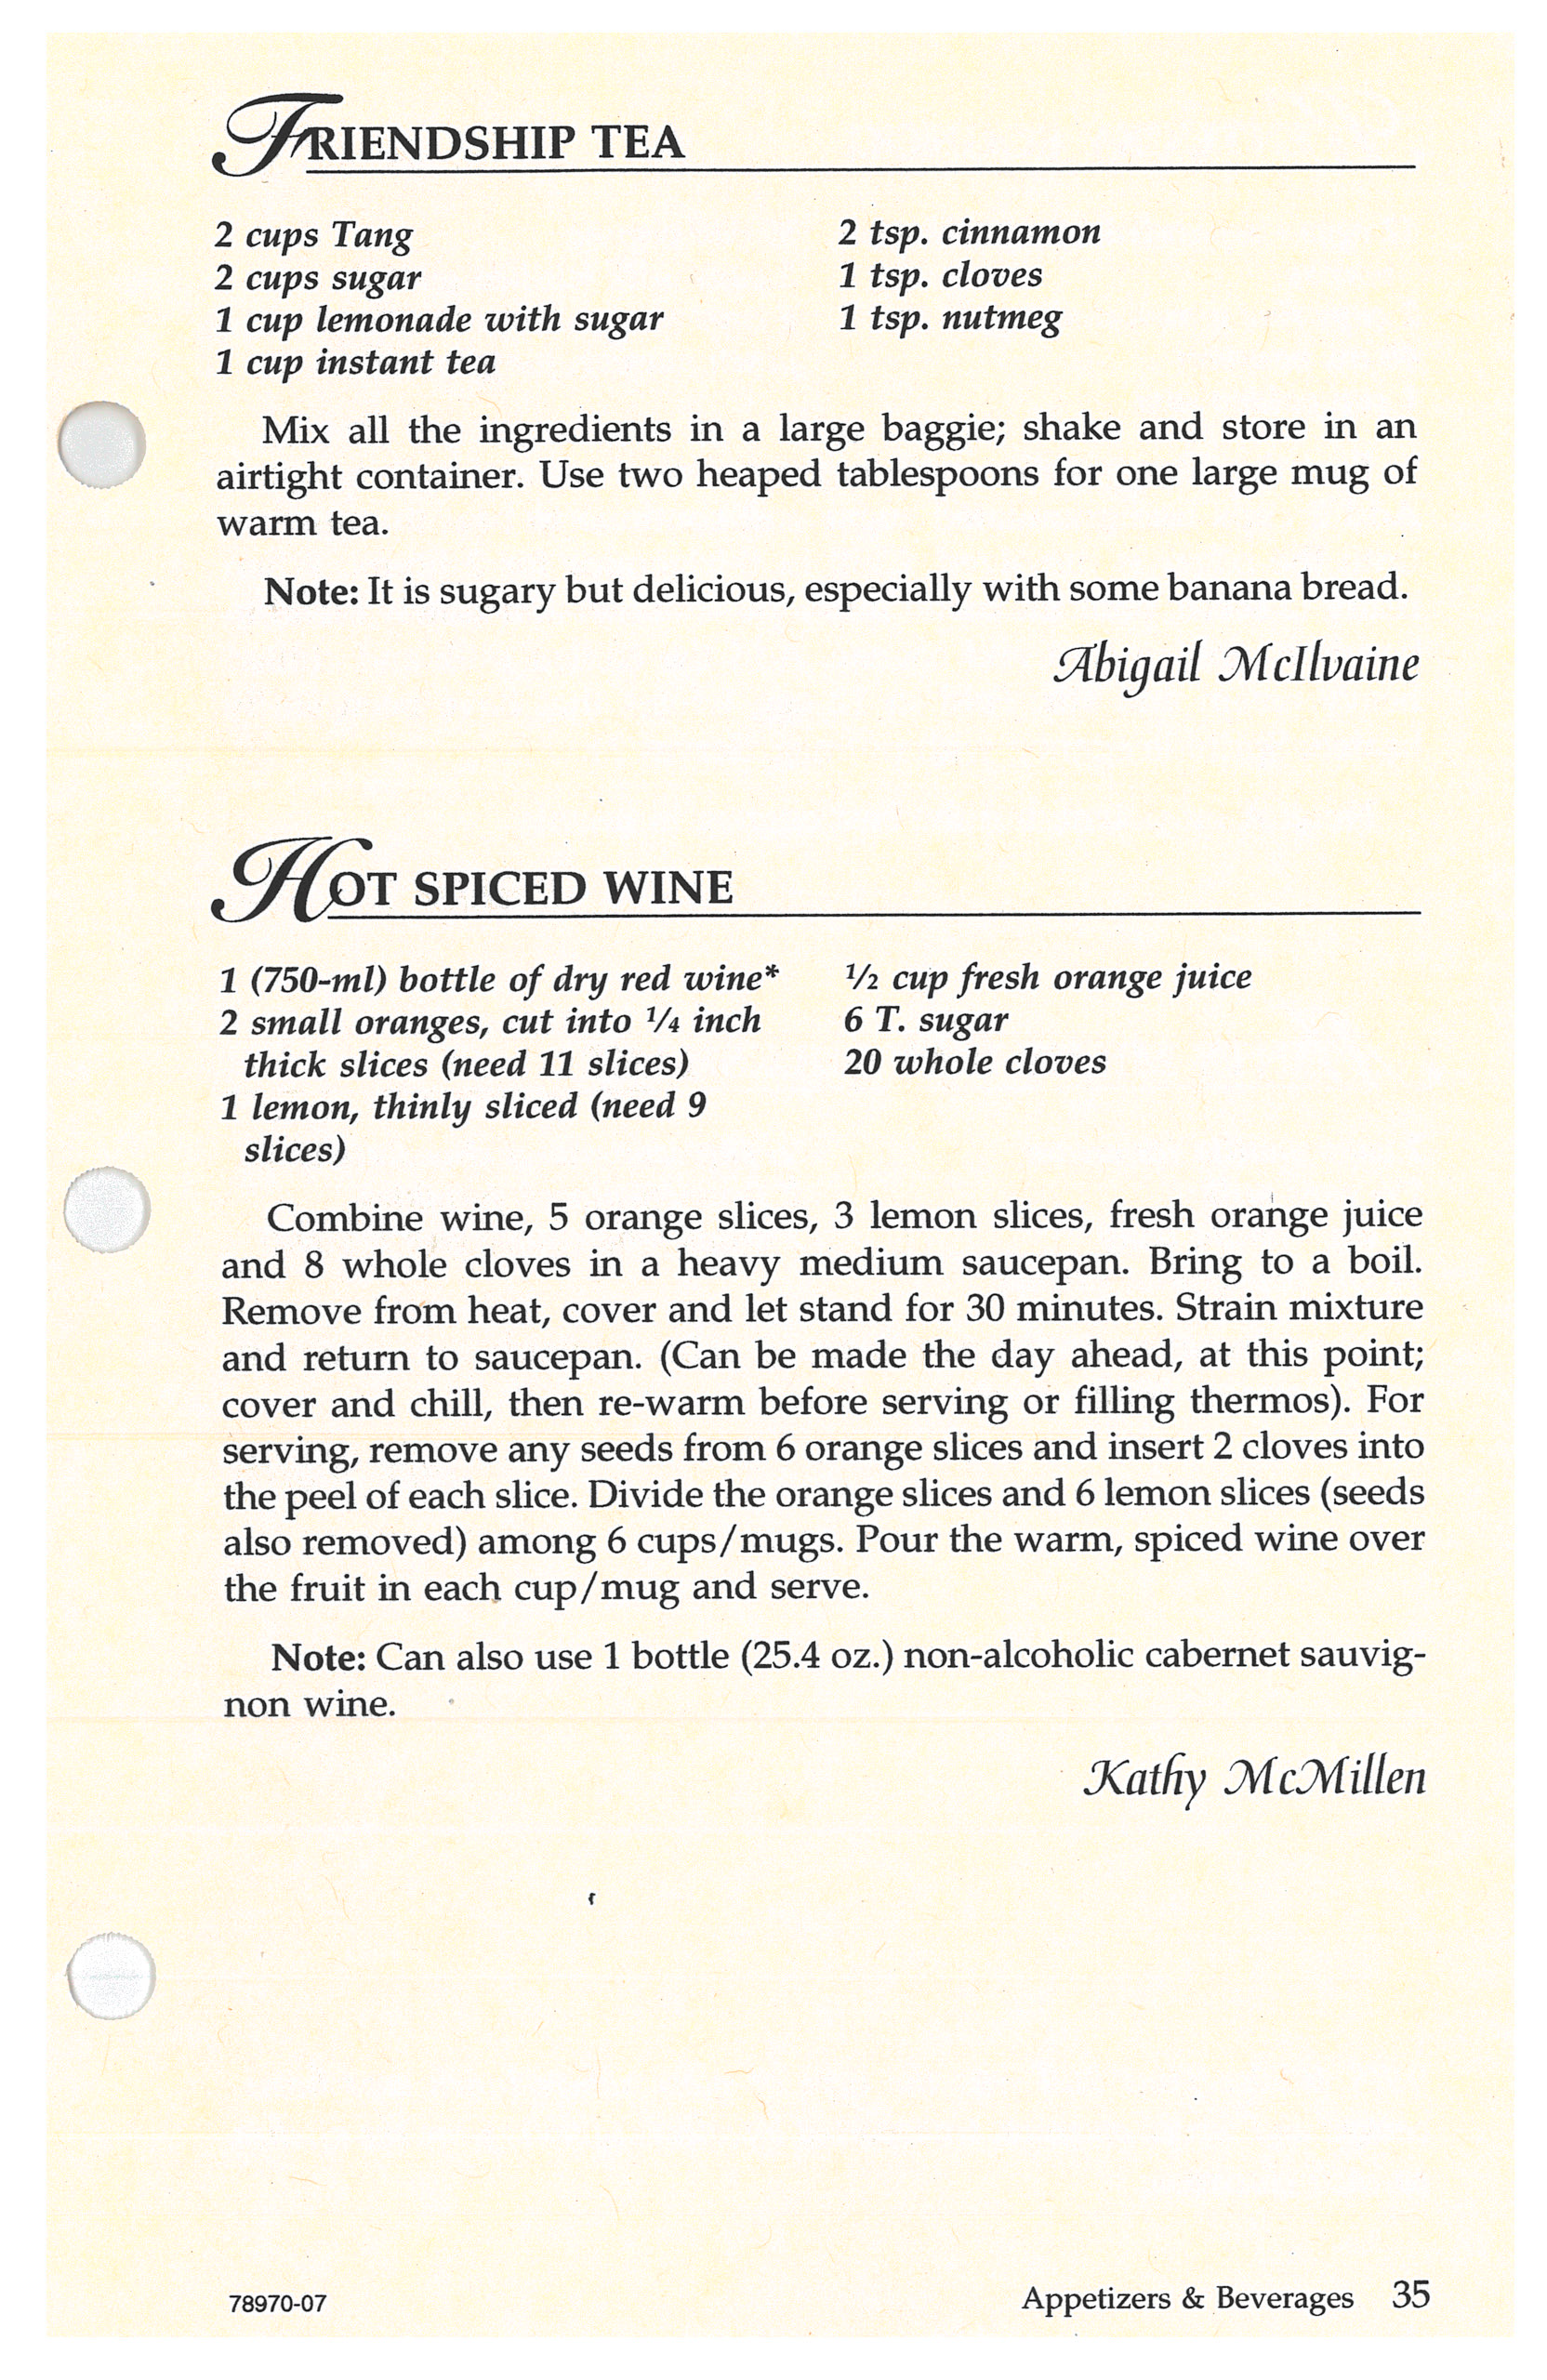 FRIENDSHIP TEA
2 cups Tang
2 cups sugar
1 cup lemonade with sugar
1 cup instant tea
2 tsp. cinnamon
1 tsp. cloves
1 tsp. nutmeg
Mix all the ingredients in a large baggie; shake and store in an
airtight container. Use two heaped tablespoons for one large mug of
warm tea.
Note: It is sugary but delicious, especially with some banana bread.
Abigail McIlvaine
HOT SPICED WINE
1 (750-ml) bottle of dry red wine*
2 small oranges, cut into 1/4 inch
thick slices (need 11 slices)
1 lemon, thinly sliced (need 9
slices)
1/2 cup fresh orange juice
6 T. sugar
20 whole cloves
Combine wine, 5 orange slices, 3 lemon slices, fresh orange juice
and 8 whole cloves in a heavy medium saucepan. Bring to a boil.
Remove from heat, cover and let stand for 30 minutes. Strain mixture
and return to saucepan. (Can be made the day ahead, at this point;
cover and chill, then re-warm before serving or filling thermos). For
serving, remove any seeds from 6 orange slices and insert 2 cloves into
the peel of each slice. Divide the orange slices and 6 lemon slices (seeds
also removed) among 6 cups/mugs. Pour the warm, spiced wine over
the fruit in each cup/mug and serve.
Note: Can also use 1 bottle (25.4 oz.) non-alcoholic cabernet sauvig-
non wine.
Kathy McMillen
78970-07
Appetizers & Beverages 35